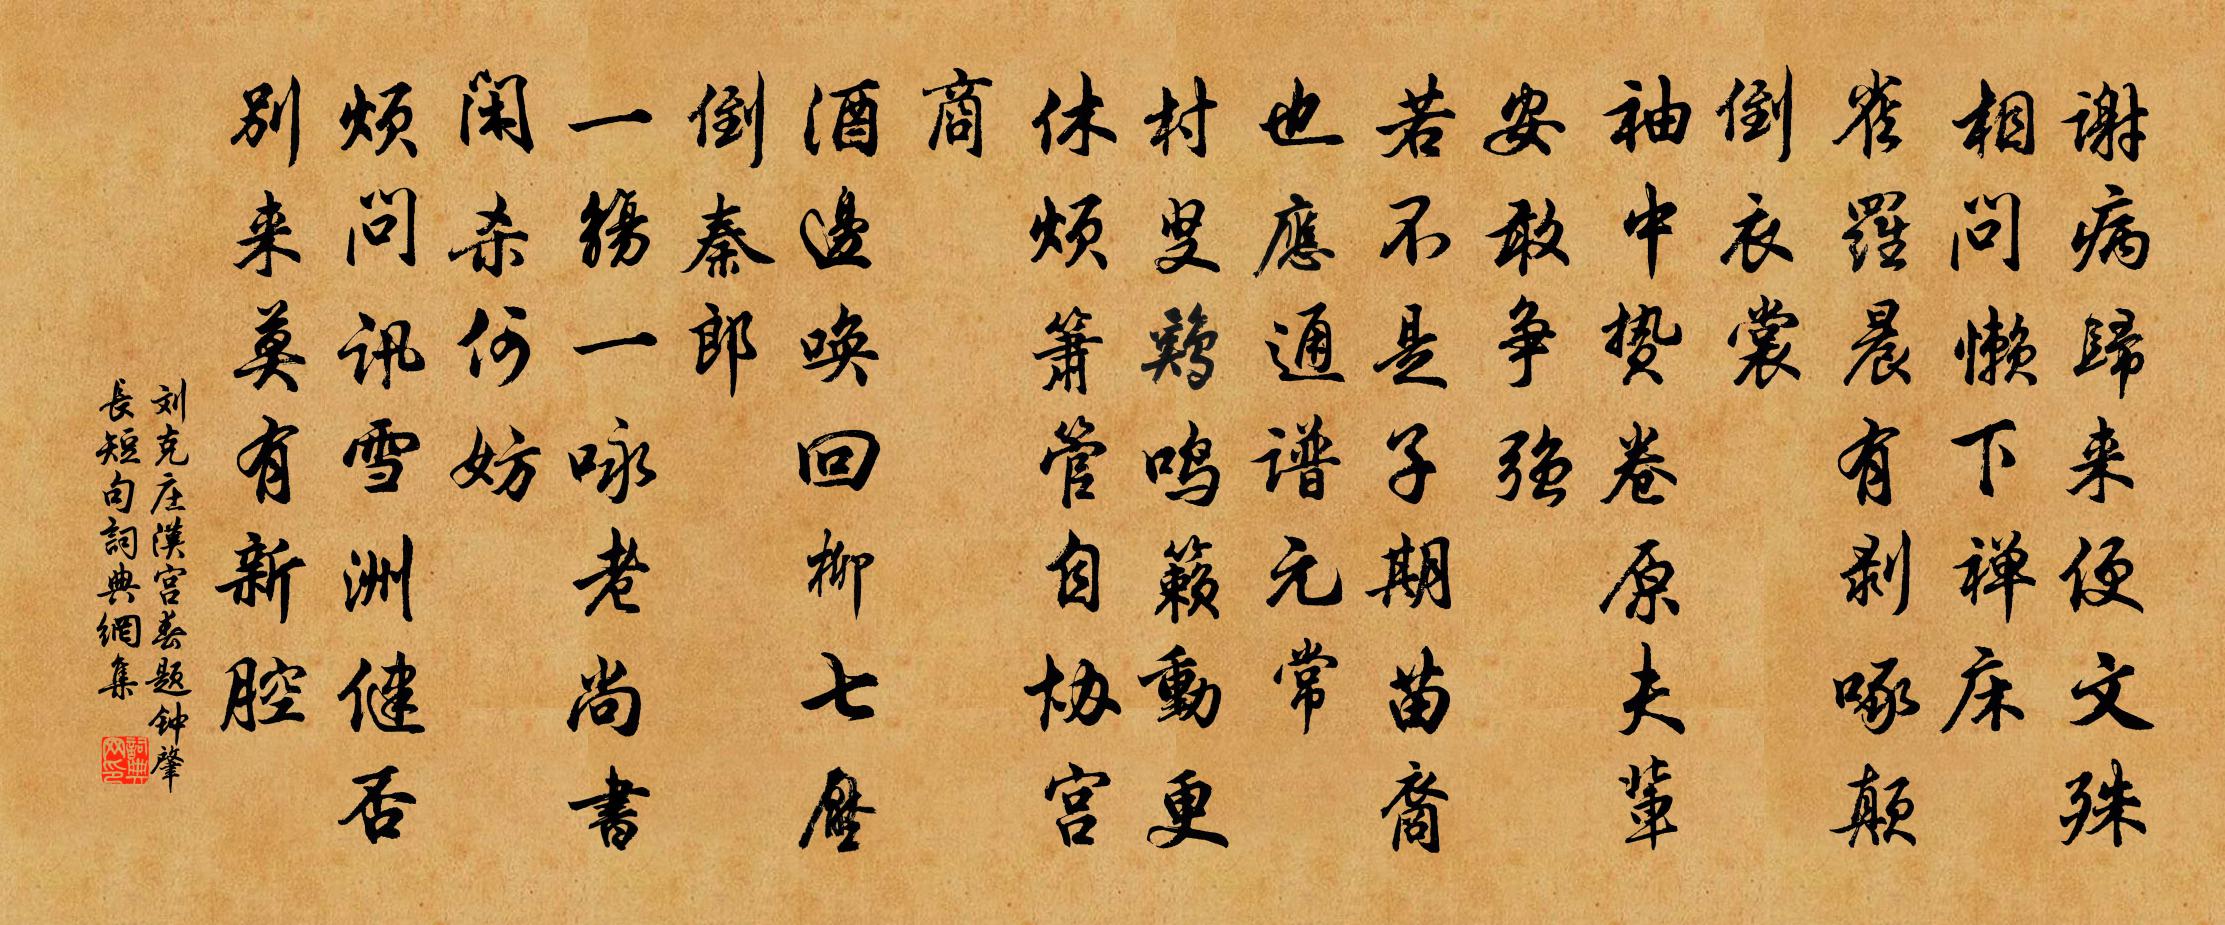 谢病歸来便文殊
相问懒下禅床
雀羅晨有剥啄颠
倒衣裳
袖中贽卷原夫輩
安敢争强
若不是子期苗裔
也應通谱元常
村叟鷄鸣籁動更
休烦簫管自协宫
商
酒邊唤回柳七壓
倒秦郎
一觴一咏老尚書
闲杀何妨
烦问讯雪洲健否
别来莫有新腔
刘克庄漢宫春题钟肇
長短句詞典網集
詞典网印